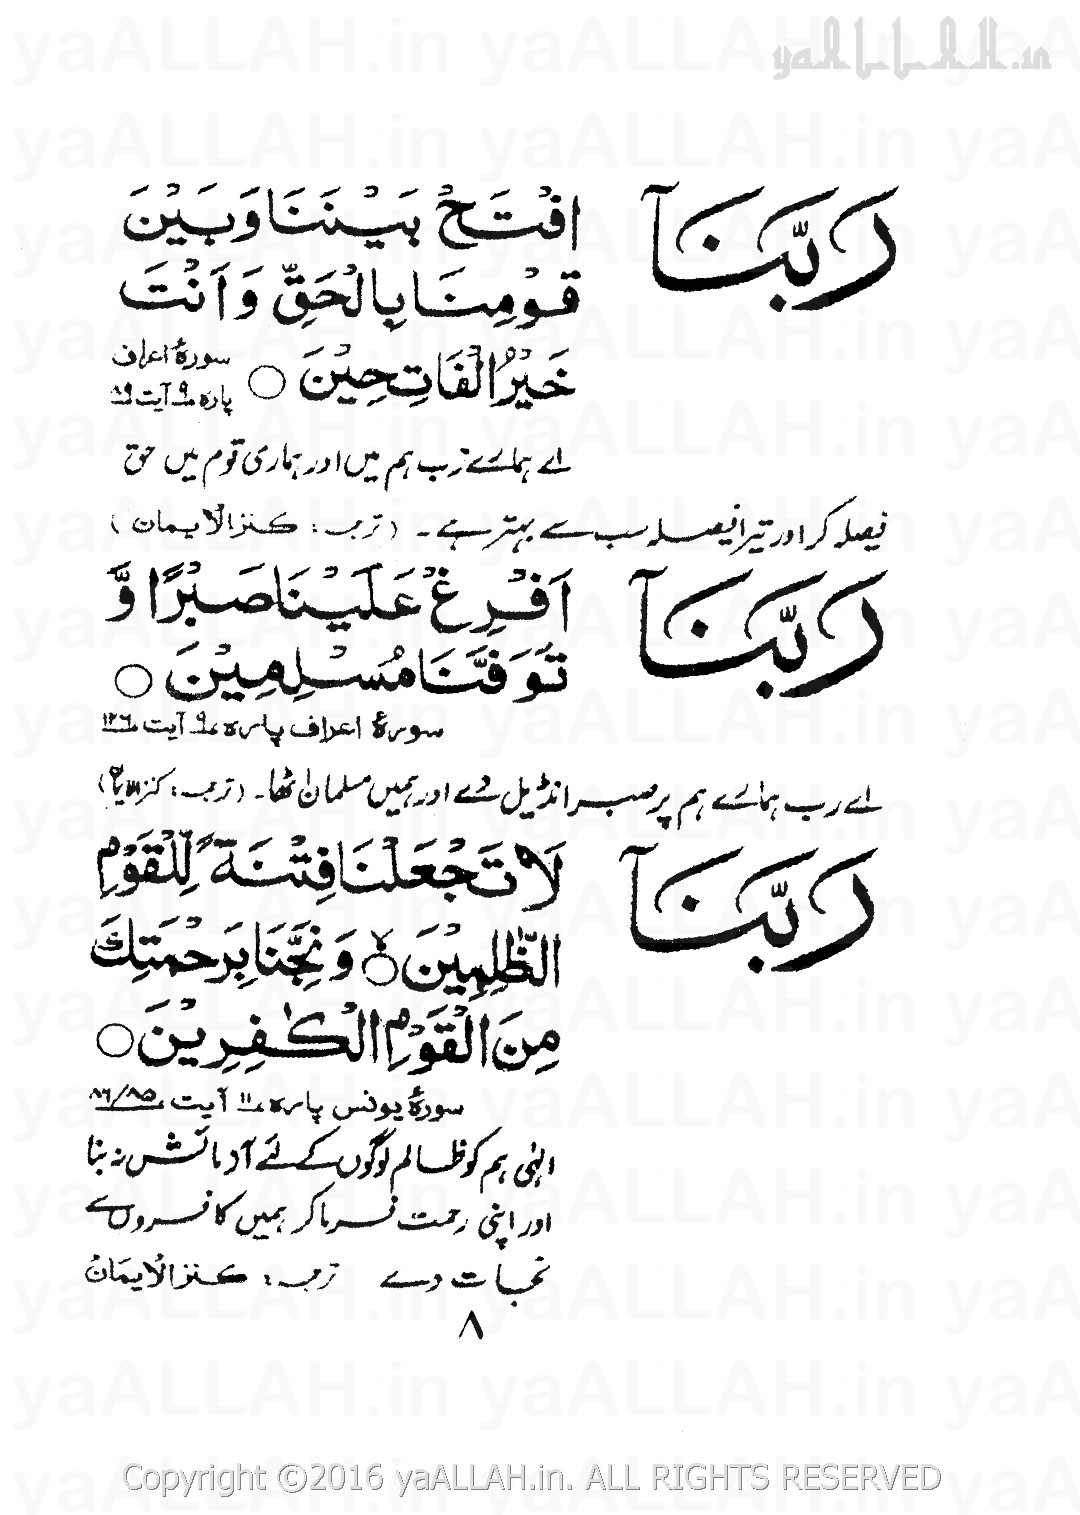 yaALLAH.in
رَبَّنَآ افْتَحْ بَيْنَنَا وَبَيْنَ
قَوْمِنَا بِالْحَقِّ وَاَنْتَ
خَيْرُ الْفَاتِحِيْنَ ○ سورۂ اعراف
پارہ ۹ آیت ۸۹
اے ہمارے رب ہم میں اور ہماری قوم میں حق
فیصلہ کر اور تیرا فیصلہ سب سے بہتر ہے ۔ (ترجمہ : کنزالایمان)
رَبَّنَآ اَفْرِغْ عَلَيْنَا صَبْرًا وَّ
تَوَفَّنَا مُسْلِمِيْنَ ○
سورۂ اعراف پارہ ۹ آیت ۱۲۶
اے رب ہمارے ہم پر صبر انڈیل دے اور ہمیں مسلمان اٹھا۔ (ترجمہ : کنزالایمان)
رَبَّنَآ لَا تَجْعَلْنَا فِتْنَةً لِّلْقَوْمِ
الظّٰلِمِيْنَ ○ وَنَجِّنَا بِرَحْمَتِكَ
مِنَ الْقَوْمِ الْكٰفِرِيْنَ ○
سورۂ یونس پارہ ۱۱ آیت ۸۶/۸۵
الٰہی ہم کو ظالم لوگوں کے لئے آزمائش نہ بنا
اور اپنی رحمت فرما کر ہمیں کافروں سے
نجات دے ترجمہ : کنزالایمان
۸
Copyright ©2016 yaALLAH.in. ALL RIGHTS RESERVED